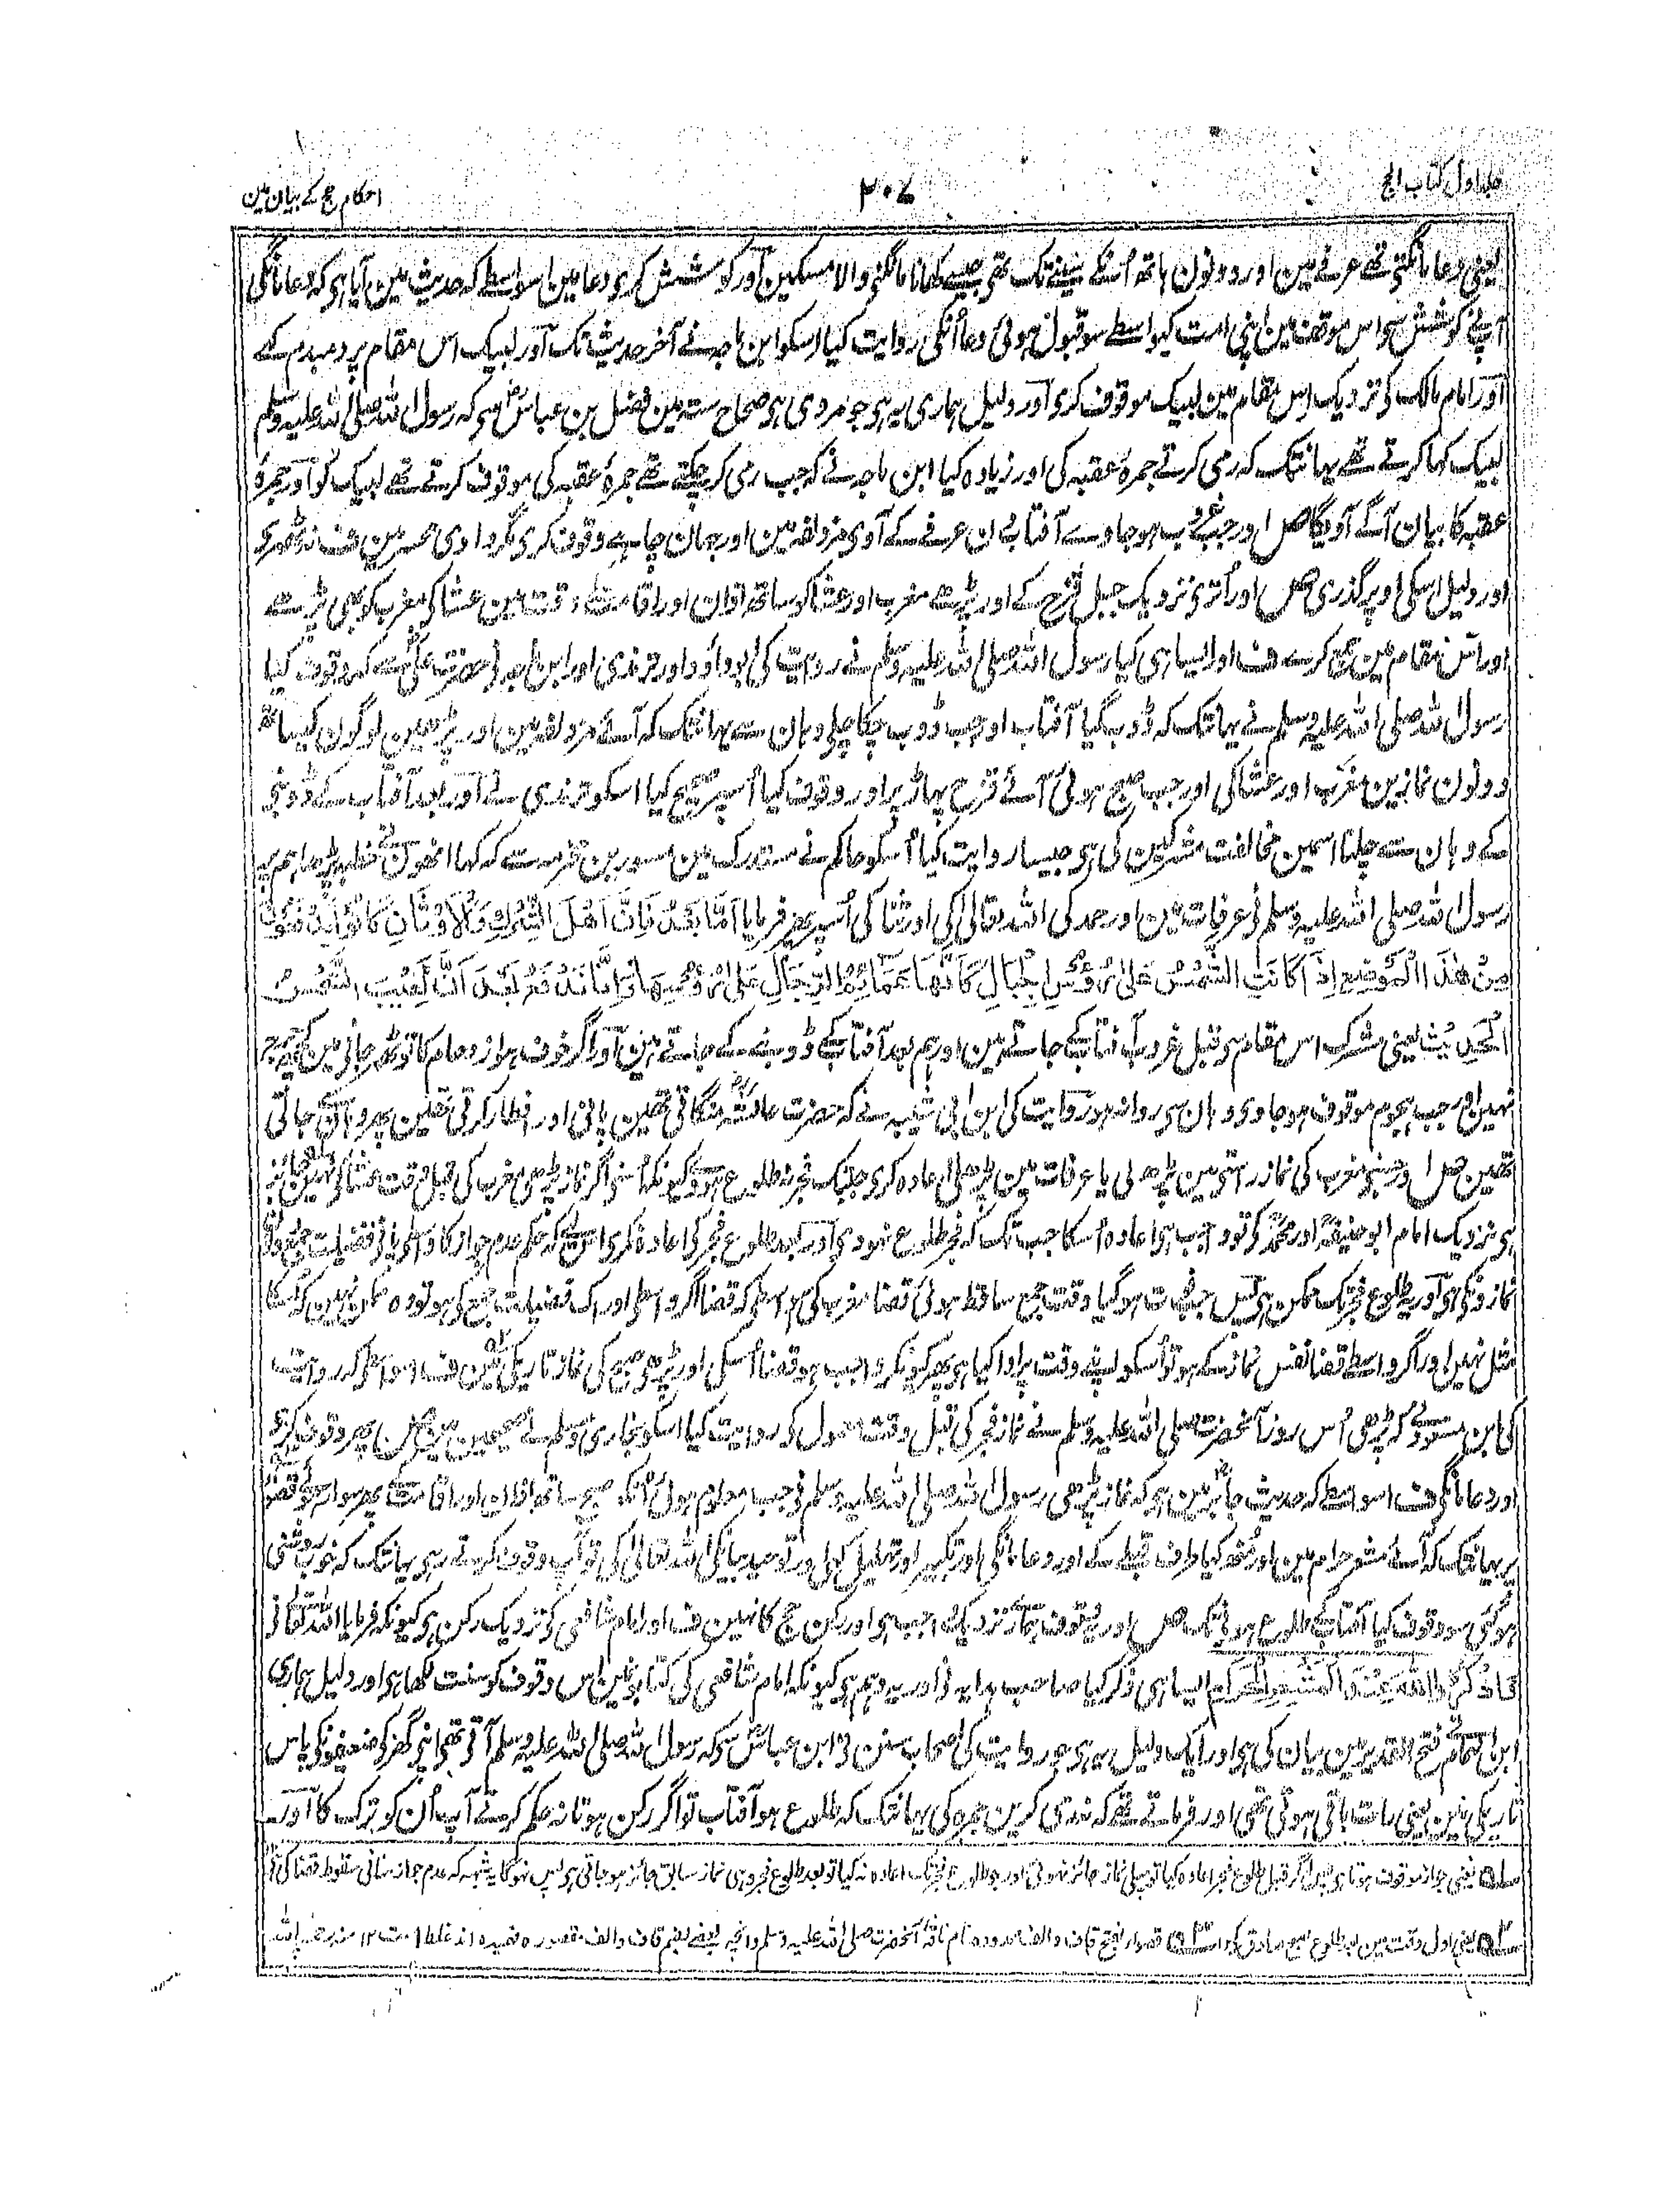 جلد اول کتاب الحج
۲۰۷
احکام حج کے بیان مین
یعنی دعا مانگتی تھے عرفے مین اور دونون ہاتھ اُنکے سینے تک تھی جیسے کھانا مانگنے والا مسکین اور کوشش کری دعا مین اسواسطے کہ حدیث مین آیا ہی کہ دعا مانگی
آپنے کوشش سی اس موقف مین اپنی امت کیواسطے سو قبول ہوئی دعا اُنکی روایت کیا اسکو ابن ماجہ نے آخر حدیث تک اور لبیک اس مقام پر دمبدم کہے
اور امام مالک کی نزدیک اس مقام مین لبیک موقوف کری اور دلیل ہماری یہ ہی جو مروی ہی صحاح ستہ مین فضل بن عباس سی کہ رسول اللہ صلی اللہ علیہ وسلم
لبیک کہا کرتے تھے یہانتک کہ رمی کرتے جمرہ عقبہ کی اور زیادہ کیا ابن ماجہ نے کہ جب رمی کر چکتے تھے جمرہ عقبہ کی موقوف کرتے تھے لبیک کو اور جمرہ
عقبہ کا بیان آگے آویگا ص اور جب غروب ہو جاوے آفتاب دن عرفے کے آوی مزدلفہ مین اور جہان چاہے وقوف کری مگر وادی محسر مین ف نہ ٹھہری
اور دلیل اسکی اوپر گذری ص اور اُتری نزدیک جبل قزح کے اور پڑھے مغرب اور عشا کو ساتھ اذان اور اقامت کے وقت مین عشا کی مغرب کو بھی پڑھے
اور اس مقام مین جمع کرے ف اور ایسا ہی کیا رسول اللہ صلی اللہ علیہ وسلم نے روایت کی ابو داؤد اور ترمذی اور ابن ماجہ نے حضرت علی سے کہ وقوف کیا
رسول اللہ صلی اللہ علیہ وسلم نے یہانتک کہ ڈوب گیا آفتاب اور جب ڈوب چکا چلی وہان سے یہانتک کہ آئے مزدلفہ مین اور پڑھین لوگون کیساتھ
دونون نمازین مغرب اور عشا کی اور جب صبح ہوئی آئے قزح پہاڑ پر اور وقوف کیا اُسپر صحیح کیا اسکو ترمذی نے اور بعد آفتاب کے ڈوبنے
کے وہان سے چلنا اسمین مخالفت مشرکین کی ہی جیسا روایت کیا اُسکو حاکم نے مستدرک مین مسور بن مخرمہ سے کہ کہا اُنھون نے خطبہ پڑھا ہم پر
رسول اللہ صلی اللہ علیہ وسلم نے عرفات مین اور حمد کی اللہ تعالیٰ کی اور ثنا کی اُسپر پھر فرمایا اَمَّا بَعْدُ فَاِنَّ اَهْلَ الشِّرْكِ وَالْاَوْثَانِ كَانُوْا يَدْفَعُوْنَ
مِنْ هٰذَا الْمَوْضِعِ اِذَا كَانَتِ الشَّمْسُ عَلٰى رُءُوْسِ الْجِبَالِ كَاَنَّهَا عَمَائِمُ الرِّجَالِ عَلٰى رُءُوْسِهَا وَاِنَّا نَدْفَعُ بَعْدَ اَنْ تَغِيْبَ الشَّمْسُ
اَلْحَدِيْث یعنی مشرک اس مقام سی قبل غروب آفتاب کے جاتے ہین اور ہم بعد آفتاب کے ڈوبنے کے جاتے ہین اور اگر خوف ہو ازدحام کا تو ٹھہر جانی مین کچھ حرج
نہین اور جب ہجوم موقوف ہو جاوی وہان سی روانہ ہو روایت کی ابن ابی شیبہ نے کہ حضرت عائشہ منگاتی تھین پانی اور افطار کرتی تھین پھر وہان سے جاتی
تھین ص اور جسنے مغرب کی نماز راستی مین پڑھ لی یا عرفات مین پڑھ لی اعادہ کری جبتک فجر نہ طلوع ہو کیونکہ اُسنی اگر نماز پڑھی مغرب کی قبل وقت عشا کی نہین جائز
ہی نزدیک امام ابو حنیفہ اور محمد کی تو واجب ہوا اعادہ اُسکا جب تک کہ فجر طلوع نہووی اور بعد طلوع فجر کی اعادہ نکری اسلئے کہ حکم عدم جواز کا واسطی پانے فضیلت جمع دونون
نمازونکی ہی اور یہ طلوع فجر تک ممکن ہی پس جب فوت ہو گیا وقت جمع ساقط ہوئی قضا مغرب کی اسواسطی کہ قضا اگر واسطی ادراک فضیلت جمع کی ہو تو وہ ممکن نہین کہ اُسکا
مثل نہین اور اگر واسطے قضا نفس نماز کے ہو تو اُسکو اپنے وقت پر ادا کیا ہی پھر کیونکر واجب ہو قضا اُسکی اور پڑھی صبح کی نماز تاریکی مین ف اسواسطی کہ روایت
کی ابن مسعود نے کہ پڑھی اُس روز آنحضرت صلی اللہ علیہ وسلم نے نماز فجر کی قبل وقت معمول کے روایت کیا اسکو بخاری و مسلم نے صحیحین مین ص پھر وقوف کری
اور دعا مانگی ف اسواسطے کہ حدیث جابر مین ہی کہ نماز پڑھی رسول اللہ صلی اللہ علیہ وسلم نے جب معلوم ہوئی اُنکو صبح ساتھ اذان اور اقامت کے پھر سوار ہوئے قصوا
پر یہانتک کہ آئے مشعر حرام مین اور مُنھ کیا طرف قبلے کے اور دعا مانگی اور تکبیر اور تہلیل کہی اور توحید بیان کی اللہ تعالیٰ کی تو آپ وقوف کرتے رہی یہانتک کہ خوب روشنی
ہو گئی سو وقوف کیا آفتاب کے طلوع ہونے تک ص اور یہ وقوف ہمارے نزدیک واجب ہی اور رکن حج کا نہین ف اور امام شافعی کی نزدیک رکن ہی کیونکہ فرمایا اللہ تعالیٰ نے
فَاذْكُرُوا اللهَ عِنْدَ الْمَشْعَرِ الْحَرَامِ ایسا ہی ذکر کیا صاحب ہدایہ نے اور یہ وہم ہی کیونکہ امام شافعی کی کتابونمین اس وقوف کو سنت لکھا ہی اور دلیل ہماری
ابن ہمام نے فتح القدیر مین بیان کی ہی اور ایک دلیل یہ ہی جو روایت کی اصحاب سنن نے ابن عباس سی کہ رسول اللہ صلی اللہ علیہ وسلم آتی تھی اپنے گھر کی ضعیفونکی پاس
تاریکی مین یعنی رات باقی ہوتی تھی اور فرماتے تھے کہ نہ رمی کرین جمرہ کی یہانتک کہ طلوع ہو آفتاب تو اگر رکن ہوتا نہ حکم کرتے آپ اُن کو ترک کا اور
یعنی جواز موقوف ہوتا ہی پس اگر قبل طلوع فجر اعادہ کیا تو پہلی نماز جائز نہوئی اور جو طلوع فجر تک اعادہ نہ کیا تو بعد طلوع فجر وہی نماز سابق جائز ہو جاتی ہی پس نہوگا یہ شبہہ کہ عدم جواز منافی سقوط قضا کی
یعنی اول وقت مین بعد طلوع صبح صادق کی قصوا بفتح قاف و الف ممدودہ نام ناقہ آنحضرت صلی اللہ علیہ وسلم و آنچہ بعضے بضم قاف و الف مقصورہ فہمیدہ اند غلط است ۱۲ منہ رحمہ اللہ